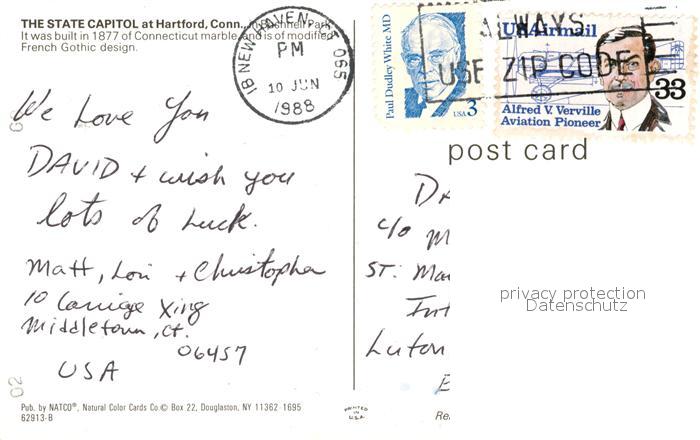 THE STATE CAPITOL at Hartford, Conn.
It was built in 1877 of Connecticut marble and is of modified
French Gothic design.
NEW HAVEN, CT 065
PM
10 JUN
1988
ALWAYS
USE ZIP CODE
Paul Dudley White MD
USA 3
USAirmail
33
Alfred V. Verville
Aviation Pioneer
post card
We Love You
DAVID + wish you
lots of Luck.
Matt, Lori + Christopher
10 Carriage Xing
Middletown, Ct.
06457
USA
c/o M
ST. Ma
Int
Luton
E
privacy protection
Datenschutz
Pub. by NATCO®, Natural Color Cards Co.© Box 22, Douglaston, NY 11362-1695
62913-B
PRINTED
IN
U.S.A.
Re
02